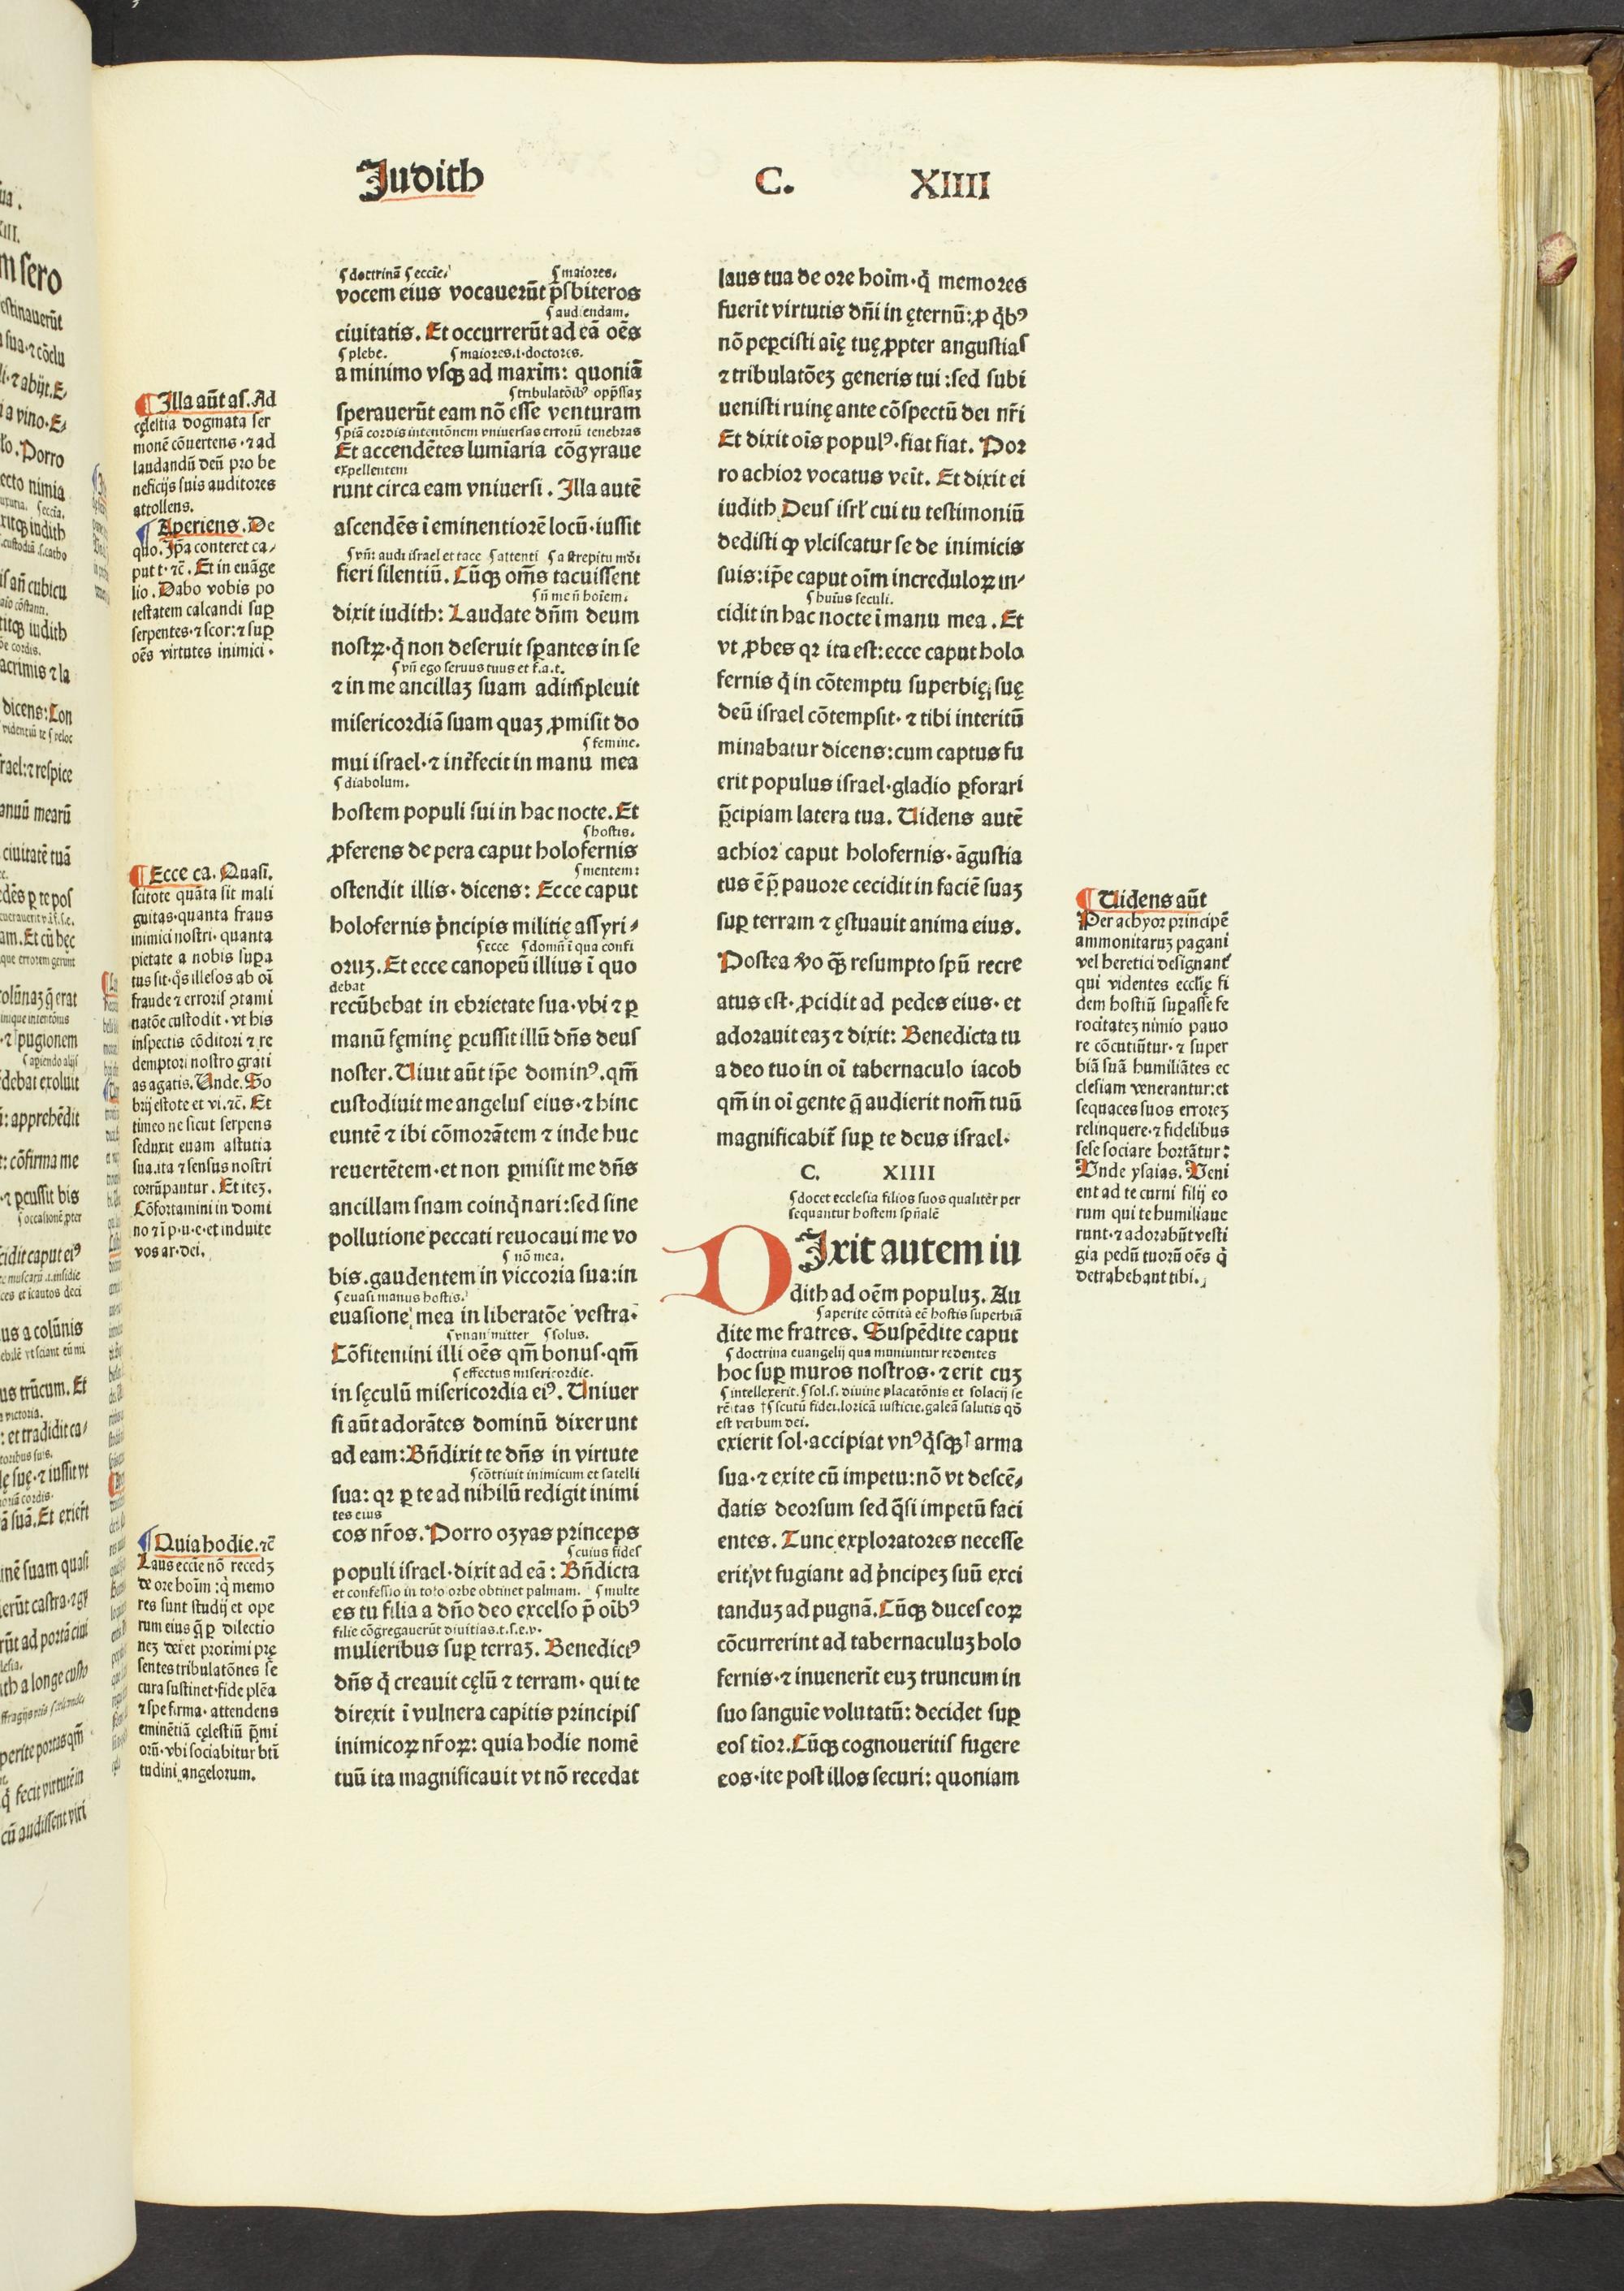 Judith C. XIIII
¶ Illa aūt as. Ad
cęlestia dogmata ser
monē cōuertens ⁊ ad
laudandū deū pro be
neficijs suis auditores
attollens.
¶ Aperiens. De
quo. Ip̄a conteret ca⸗
put t. ⁊c̄. Et in euāge
lio. Dabo vobis po
testatem calcandi suꝑ
serpentes ⁊ scor: ⁊ suꝑ
oēs virtutes inimici.
¶ Ecce ca. Quasi.
scitote quāta sit mali
gnitas quanta fraus
inimici nostri. quanta
pietate a nobis suꝑa
tus sit. q̇s illesos ab oī
fraude ⁊ erroris ɔtami
natōe custodit. vt his
inspectis cōditori ⁊ re
demptori nostro grati
as agatis. Unde. So
brij estote et vi. ⁊c̄. Et
timeo ne sicut serpens
seduxit euam astutia
sua. ita ⁊ sensus nostri
corrūpantur. Et iteꝫ.
Cōfortamini in domi
no ⁊ ī p. u. e. et induite
vos ar. dei.
¶ Quia hodie. ⁊c̄
Laus eccīe nō recedꝫ
de ore hoīm: q̇ memo
res sunt studij et ope
rum eius q̄ ꝑ dilectio
neꝫ dei et proximi prę
sentes tribulatōnes se
cura sustinet. fide plēa
⁊ spe firma. attendens
eminētiā cęlestiū p̄mi
orū. vbi sociabitur btī
tudini angelorum.
ʃ doctrinā ʃ eccīe. ʃ maiores.
vocem eius vocauerūt p̄sbiteros
ʃ audiendam.
ciuitatis. Et occurrerūt ad eā oēs
ʃ plebe. ʃ maiores. i. doctores.
a minimo vsqꝫ ad maxim̄: quoniā
ʃ tribulatōibꝰ opp̄ssaꝫ
sperauerūt eam nō esse venturam
ʃ piā cordis intentōnem vniuersas errorū tenebras
Et accendētes lumīaria cōgyraue
expellentem
runt circa eam vniuersi. Illa autē
ascendēs ī eminentiorē locū. iussit
ʃ vn̄: audi israel et tace ʃ attenti ʃ a strepitu mōi
fieri silentiū. Cūqꝫ om̄s tacuissent
ʃ n̄ me n̄ hoīem.
dixit iudith: Laudate dn̄m deum
nostꝝ. q̇ non deseruit sꝑantes in se
ʃ vn̄ ego seruus tuus et f. a. t.
⁊ in me ancillaꝫ suam adimpleuit
misericordiā suam quaꝫ ꝓmisit do
ʃ femine.
mui israel. ⁊ int̄fecit in manu mea
ʃ diabolum.
hostem populi sui in hac nocte. Et
ʃ hostis.
ꝓferens de pera caput holofernis
ʃ mentem:
ostendit illis. dicens: Ecce caput
holofernis p̄ncipis militię assyri⸗
ʃ ecce ʃ domū ī qua confi
oruꝫ. Et ecce canopeū illius ī quo
debat
recūbebat in ebrietate sua. vbi ⁊ ꝑ
manū fęminę ꝑcussit illū dn̄s deus
noster. Uiuit aūt ip̄e dominꝰ. qm̄
custodiuit me angelus eius. ⁊ hinc
euntē ⁊ ibi cōmorātem ⁊ inde huc
reuertētem. et non ꝑmisit me dn̄s
ancillam snam coinq̇nari: sed sine
pollutione peccati reuocaui me vo
ʃ nō mea.
bis. gaudentem in viccoria sua: in
ʃ euasi manus hostis.
euasione mea in liberatōe vestra.
ʃ solus.
Cōfitemini illi oēs qm̄ bonus. qm̄
ʃ effectus misericordie.
in sęculū misericordia eiꝰ. Uniuer
si aūt adorātes dominū dixerunt
ad eam: Bn̄dixit te dn̄s in virtute
ʃ cōtriuit inimicum et satelli
sua: qꝛ ꝑ te ad nihilū redigit inimi
tes eius
cos nr̄os. Porro oꝫyas princeps
ʃ cuius fides
populi israel. dixit ad eā: Bn̄dicta
et confessio in toto orbe obtinet palmam. ʃ multe
es tu filia a dn̄o deo excelso p̄ oībꝰ
filie cōgregauerūt diuitias. t. s. e. v.
mulieribus suꝑ terraꝫ. Benedictꝰ
dn̄s q̇ creauit cęlū ⁊ terram. qui te
direxit ī vulnera capitis principis
inimicoꝝ nr̄oꝝ: quia hodie nomē
tuū ita magnificauit vt nō recedat
laus tua de ore hoīm. q̇ memores
fuerīt virtutis dn̄i in ęternū: ꝓ q̇bꝰ
nō peꝑcisti aīę tuę ꝓpter angustias
⁊ tribulatōeꝫ generis tui: sed subi
uenisti ruinę ante cōspectū dei nr̄i
Et dixit oīs populꝰ. fiat fiat. Por
ro achior vocatus veīt. Et dixit ei
iudith Deus isrl̓ cui tu testimoniū
dedisti ꝙ vlciscatur se de inimicis
suis: ip̄e caput oīm increduloꝝ in⸗
ʃ huius seculi.
cidit in hac nocte ī manu mea. Et
vt ꝓbes qꝛ ita est: ecce caput holo
fernis q̇ in cōtemptu superbię suę
deū israel cōtempsit. ⁊ tibi interitū
minabatur dicens: cum captus fu
erit populus israel. gladio ꝑforari
p̄cipiam latera tua. Uidens autē
achior caput holofernis. āgustia
tus ē p̄ pauore cecidit in faciē suaꝫ
suꝑ terram ⁊ ęstuauit anima eius.
Postea v̊o q̄ꝫ resumpto spū recre
atus est. ꝓcidit ad pedes eius. et
adorauit eaꝫ ⁊ dixit: Benedicta tu
a deo tuo in oī tabernaculo iacob
qm̄ in oī gente q̄ audierit nom̄ tuū
magnificabit̄ suꝑ te deus israel.
C. XIIII
ʃ docet ecclesia filios suos qualitēr per
sequantur hostem spn̄alē
DIxit autem iu
dith ad oēm populuꝫ. Au
ʃ aperite cōtritā eē hostis superbiā
dite me fratres. Suspēdite caput
ʃ doctrina euangelij qua muniuntur redentes
hoc suꝑ muros nostros. ⁊ erit cuꝫ
ʃ intellexerit. ʃ sol. s. diuine placatōnis et solacij se
rēitas † ʃ scutū fidei. loricā iusticie. galeā salutis qđ
est verbum dei.
exierit sol. accipiat vnꝰq̇sqꝫ † arma
sua. ⁊ exite cū impetu: nō vt descē⸗
datis deorsum sed q̇si impetū faci
entes. Tunc exploratores necesse
erit, vt fugiant ad p̄ncipeꝫ suū exci
tanduꝫ ad pugnā. Cūqꝫ duces eoꝝ
cōcurrerint ad tabernaculuꝫ holo
fernis. ⁊ inuenerīt euꝫ truncum in
suo sanguīe volutatū: decidet suꝑ
eos tīor. Cūqꝫ cognoueritis fugere
eos. ite post illos securi: quoniam
¶ Uidens aūt
Per achyor principē
ammonitaruꝫ pagani
vel heretici designant̄
qui videntes ecclię fi
dem hostiū suꝑasse fe
rocitateꝫ nimio pauo
re cōcutiūtur. ⁊ super
biā suā humiliātes ec
clesiam venerantur: et
sequaces suos erroreꝫ
relinquere. ⁊ fidelibus
sese sociare hortātur:
Unde ysaias. Veni
ent ad te curni filij eo
rum qui te humiliaue
runt. ⁊ adorabūt vesti
gia pedū tuorū oēs q̇
detrahebant tibi.